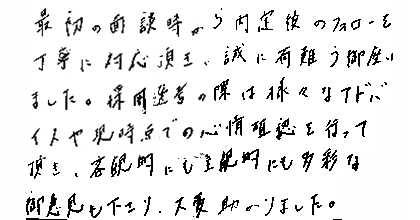 最初の面談時から内定後のフォローを
丁寧に対応頂き、誠に有難う御座い
ました。採用選考の際は様々なアドバ
イスや現時点での心情確認を行って
頂き、客観的にも主観的にも多彩な
御意見も下さり、大変助かりました。